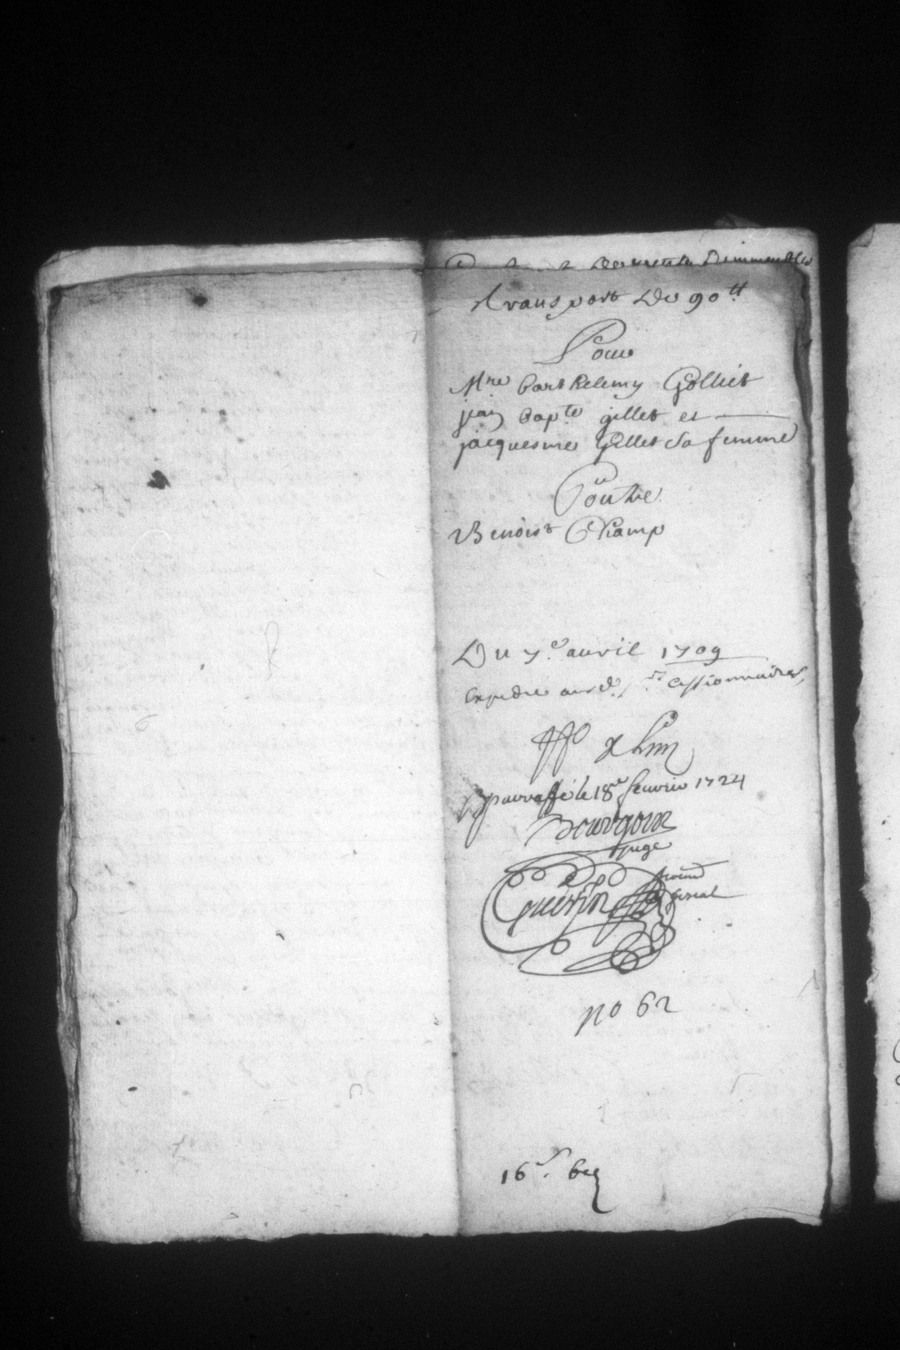 d'immeubles
Transport De 90tt
Pour
Mre Barthelemy Golliet
jean bapte gillet et
jacquesme Gillet sa femme
Contre
Benoist Champ
Du 7e avril 1709
Expedie aud. srs cessionnaires
paraffé le 18e feuvrier 1724
Bourgoin
juge
Guerin
fiscal
no 62
16s. 6d